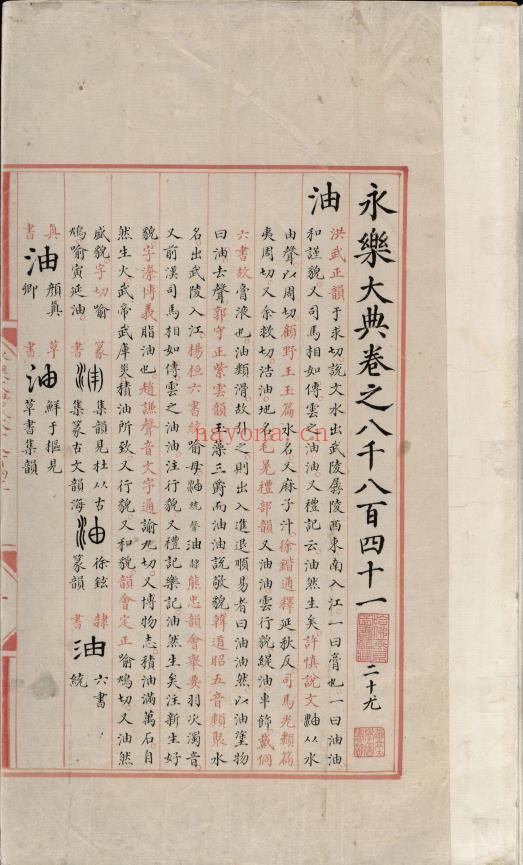 永樂大典卷之八千八百四十一 二十尤
油
洪武正韻于求切說文水出武陵孱陵西東南入江一曰膏也一曰油油
和謹貌又司馬相如傳雲之油油又禮記云油然生矣許慎說文油从水
由聲以周切顧野王玉篇水名又麻子汁徐鍇通釋延狄反司馬光類篇
夷周切又余救切浩油地名毛晃禮部韻又油油雲行貌緹油車飾戴侗
六書故膏液也油類滑故針之則出入進退順易者曰油油然以油塗物
曰油去聲郭守正紫雲韻玉藻三爵而油油說敬貌韓道昭五音類聚水
名出武陵入江楊桓六書統喻母油統聲油隸熊忠韻會舉要羽次濁音
又前漢司馬相如傳雲之油油注行貌又禮記樂記油然生矣注新生好
貌字潆博義脂油也趙謙聲音文字通諭尤切又博物志積油滿萬石自
然生火武帝武庫災積油所致又行貌又和貌韻會定正喻鳩切又油然
盛貌字切喻
鳩喻寅延油
篆書 油 集韻見杜从古集篆古文韻海 油 徐鉉篆韻 隸書 油 六書統
真書 油 顏真卿 草書 油 鮮于樞見草書集韻
hayona.cn